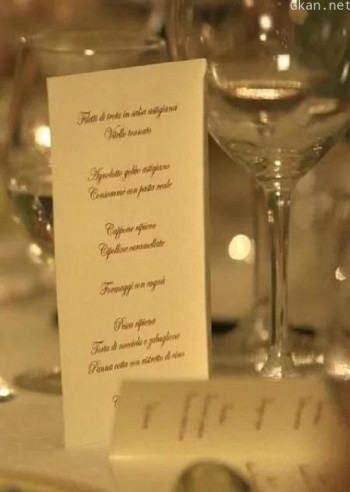 Gkan.net
Filetti di trota in salsa astigiana
Vitello tonnato
Agnolotto gobbo astigiano
Consommé con pasta reale
Cappone ripieno
Cipolline caramellate
Formaggi con cognà
Pesca ripiena
Torta di nocciole e zabaglione
Panna cotta con ristretto di vino